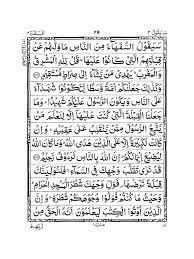 سيقول ٢ ٢٩ البقرة ٢
سَيَقُوْلُ السُّفَهَآءُ مِنَ النَّاسِ مَا وَلّٰىهُمْ عَنْ
قِبْلَتِهِمُ الَّتِىْ كَانُوْا عَلَيْهَا ؕ قُلْ لِّلّٰهِ الْمَشْرِقُ
وَالْمَغْرِبُ ؕ يَهْدِىْ مَنْ يَّشَآءُ اِلٰى صِرَاطٍ مُّسْتَقِيْمٍ
وَكَذٰلِكَ جَعَلْنٰكُمْ اُمَّةً وَّسَطًا لِّتَكُوْنُوْا شُهَدَآءَ
عَلَى النَّاسِ وَيَكُوْنَ الرَّسُوْلُ عَلَيْكُمْ شَهِيْدًا ؕ وَمَا
جَعَلْنَا الْقِبْلَةَ الَّتِىْ كُنْتَ عَلَيْهَآ اِلَّا لِنَعْلَمَ مَنْ
يَّتَّبِعُ الرَّسُوْلَ مِمَّنْ يَّنْقَلِبُ عَلٰى عَقِبَيْهِ ؕ وَاِنْ
كَانَتْ لَكَبِيْرَةً اِلَّا عَلَى الَّذِيْنَ هَدَى اللّٰهُ ؕ وَمَا كَانَ اللّٰهُ
لِيُضِيْعَ اِيْمَانَكُمْ ؕ اِنَّ اللّٰهَ بِالنَّاسِ لَرَءُوْفٌ رَّحِيْمٌ
قَدْ نَرٰى تَقَلُّبَ وَجْهِكَ فِى السَّمَآءِ ۚ فَلَنُوَلِّيَنَّكَ
قِبْلَةً تَرْضٰىهَا ۪ فَوَلِّ وَجْهَكَ شَطْرَ الْمَسْجِدِ الْحَرَامِ
وَحَيْثُ مَا كُنْتُمْ فَوَلُّوْا وُجُوْهَكُمْ شَطْرَهٗ ؕ وَاِنَّ
الَّذِيْنَ اُوْتُوا الْكِتٰبَ لَيَعْلَمُوْنَ اَنَّهُ الْحَقُّ مِنْ
رَّبِّهِمْ